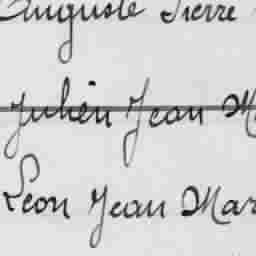 Auguste Pierre
Julien Jean M
Léon Jean Mar